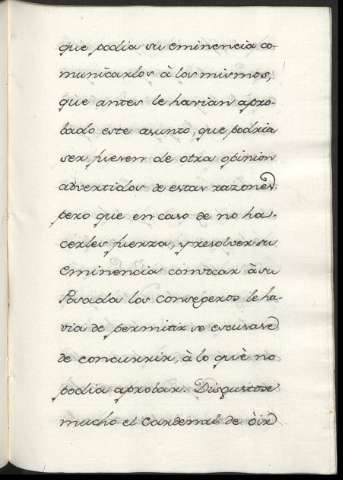 que podia su eminencia co-
municarlos à los mismos,
que antes le havian apro-
bado este asunto, que podria
ser fuesen de otra opinion
advertidos de estas razones,
pero que en caso de no ha-
cerles fuerza, y resolver su
Eminencia convocar à su
Posada los consegeros le ha-
via de permitir se escusase
de concurrir, à lo què no
podia aprobar. Disgustose
mucho el Cardenal de òir